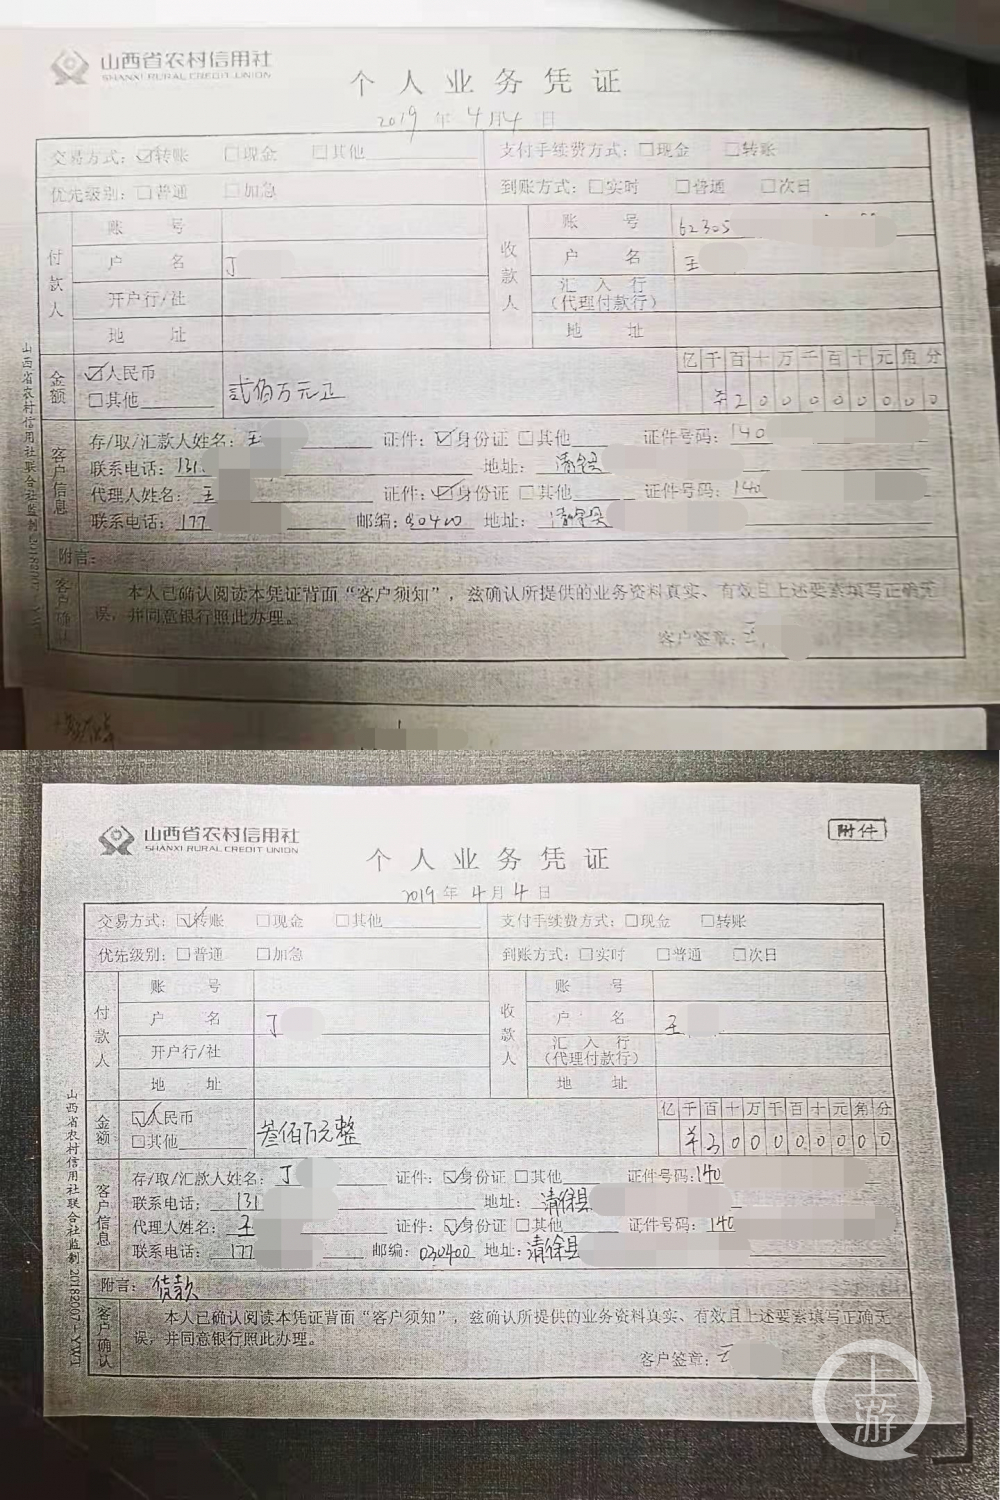 山西省农村信用社
SHANXI RURAL CREDIT UNION
个人业务凭证
2019年4月4日
交易方式：☑转账 □现金 □其他 支付手续费方式：□现金 □转账
优先级别：□普通 □加急 到账方式：□实时 □普通 □次日
付款人 收款人
账号 账号 62305
户名 丁 户名 王
开户行/社 汇入行（代理付款行）
地址 地址
金额 ☑人民币 贰佰万元正 亿千百十万千百十元角分
□其他 ¥200000000
客户信息
存/取/汇款人姓名：王 证件：☑身份证 □其他 证件号码：140
联系电话：131 地址：清徐县
代理人姓名：王 证件：☑身份证 □其他 证件号码：140
联系电话：177 邮编：030400 地址：清徐县
附言：
客户确认
本人已确认阅读本凭证背面“客户须知”，兹确认所提供的业务资料真实、有效且上述要素填写正确无
误，并同意银行照此办理。
客户签章：王
山西省农村信用社联合社监制
山西省农村信用社
SHANXI RURAL CREDIT UNION
附件
个人业务凭证
2019年4月4日
交易方式：☑转账 □现金 □其他 支付手续费方式：□现金 □转账
优先级别：□普通 □加急 到账方式：□实时 □普通 □次日
付款人 收款人
账号 账号
户名 丁 户名 王
开户行/社 汇入行（代理付款行）
地址 地址
金额 ☑人民币 叁佰万元整 亿千百十万千百十元角分
□其他 ¥300000000
客户信息
存/取/汇款人姓名：丁 证件：☑身份证 □其他 证件号码：140
联系电话：131 地址：清徐县
代理人姓名：王 证件：☑身份证 □其他 证件号码：140
联系电话：177 邮编：030400 地址：清徐县
附言：货款
客户确认
本人已确认阅读本凭证背面“客户须知”，兹确认所提供的业务资料真实、有效且上述要素填写正确无
误，并同意银行照此办理。
客户签章：王
山西省农村信用社联合社监制
上游